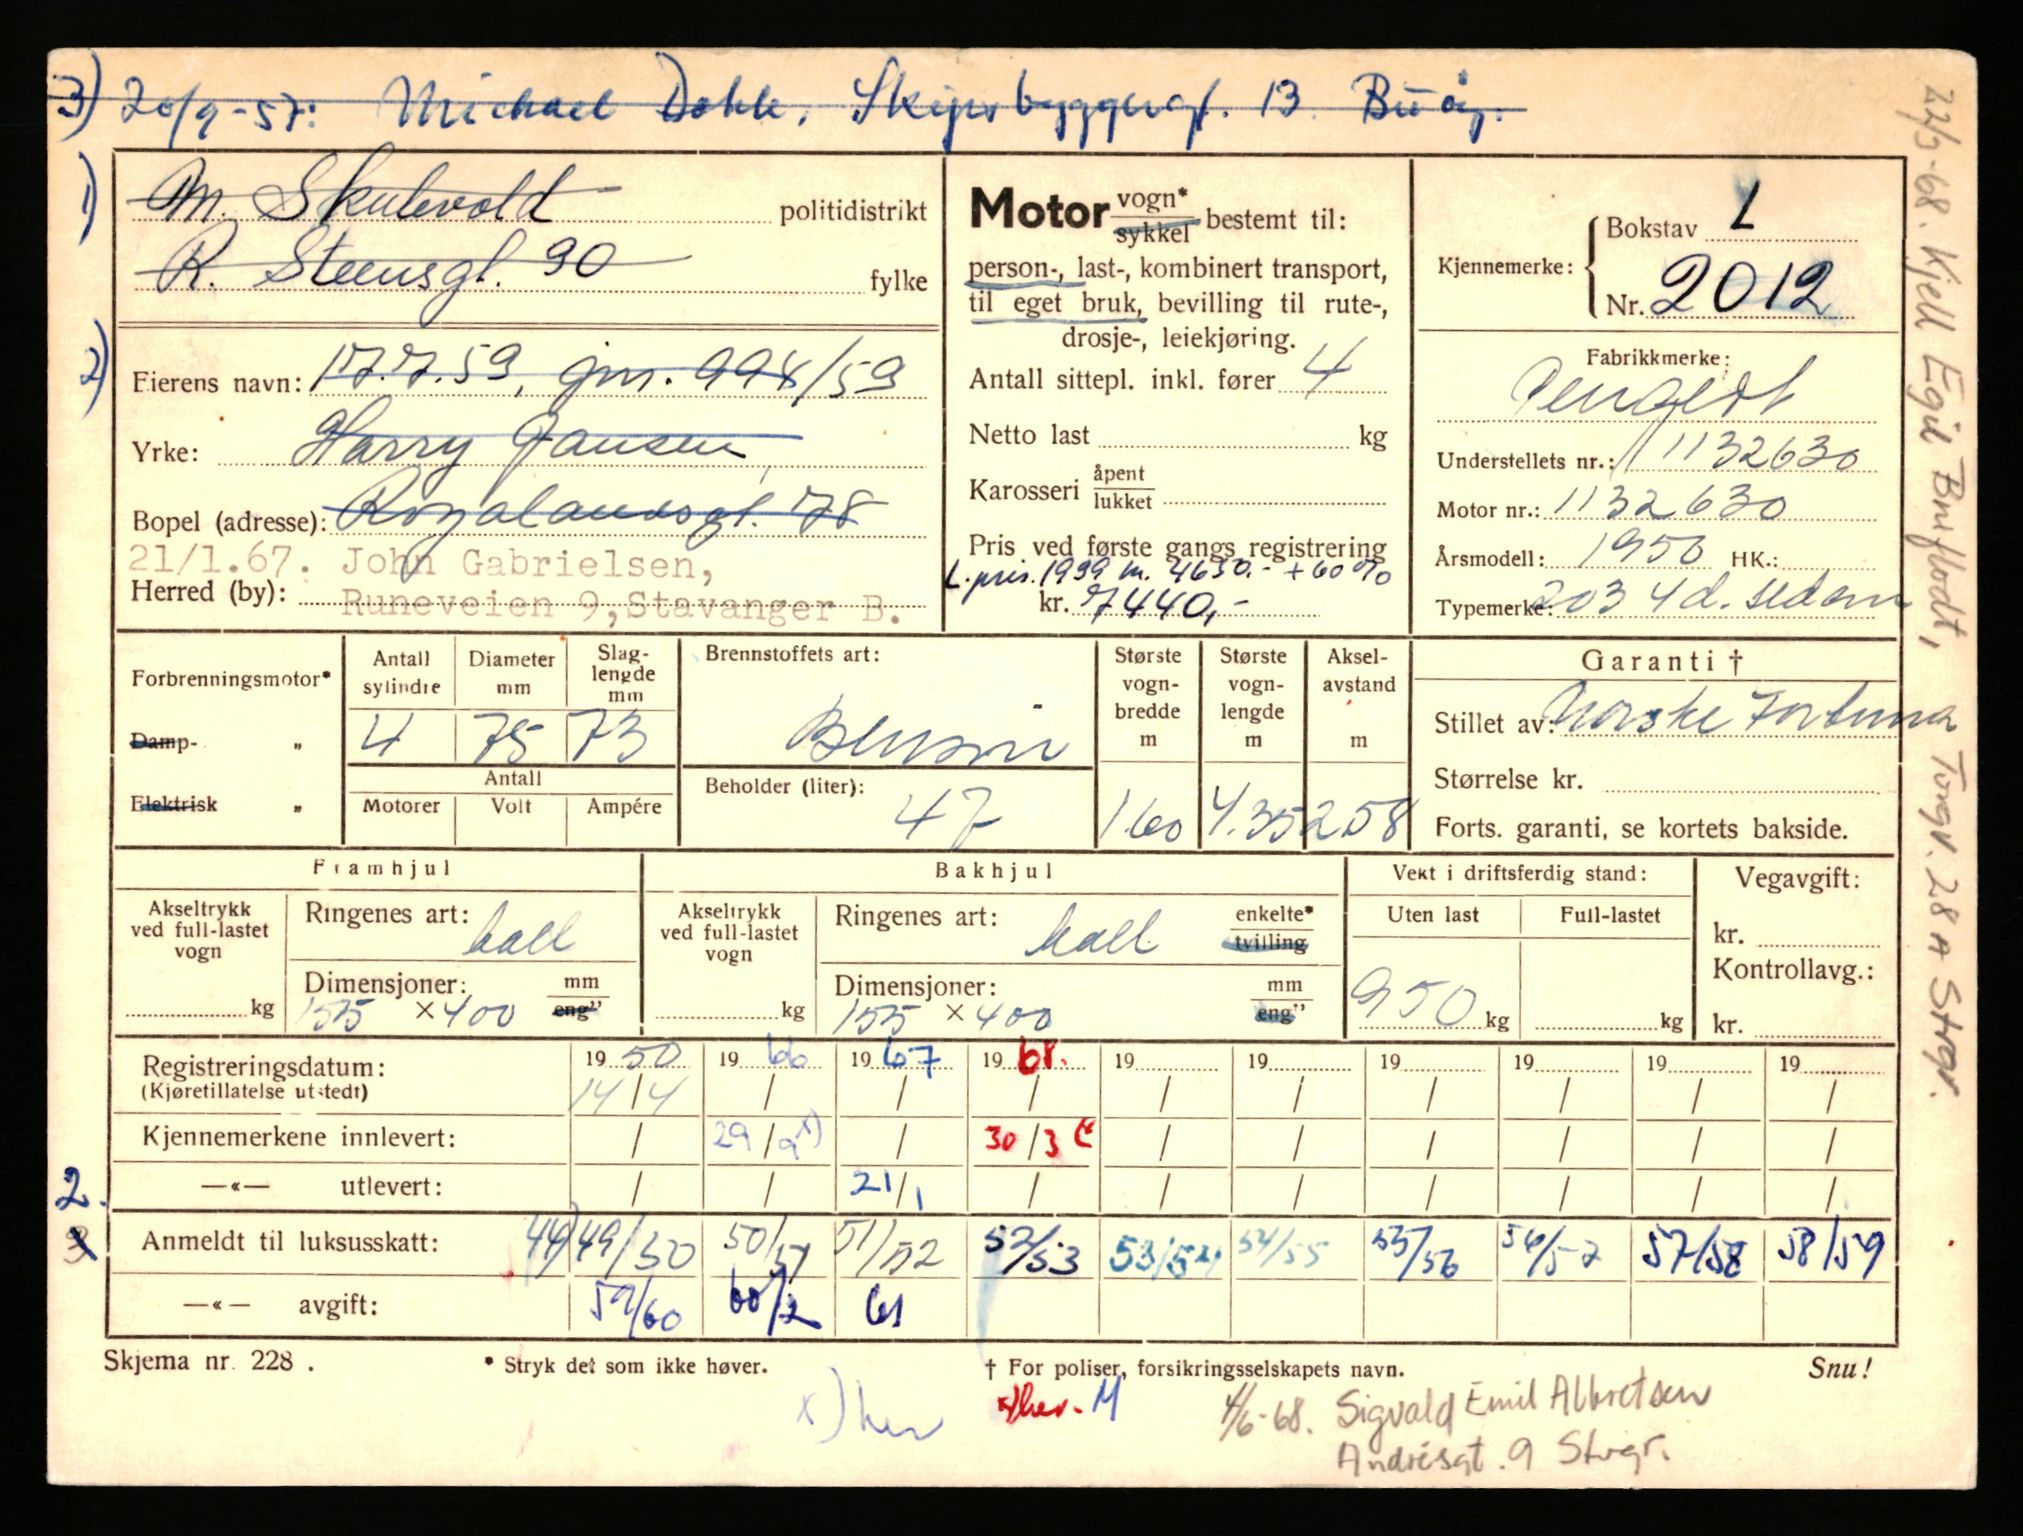 3) 20/9-57: Michael Dahle, Skipsbyggergt. 13 Buøy.
1) M. Skulevold politidistrikt
R. Steensgt. 90 fylke
2) Eierens navn: 17.7.59, gm. 994/59
Yrke: Harry Jansen,
Bopel (adresse): Rogalandsgt. 78
21/1.67. John Gabrielsen,
Herred (by): Runeveien 9, Stavanger B.
Motor vogn* / sykkel bestemt til:
person-, last-, kombinert transport,
til eget bruk, bevilling til rute-,
drosje-, leiekjøring.
Antall sittepl. inkl. fører 4
Netto last kg
Karosseri åpent / lukket
Pris ved første gangs registrering
L.pris. 1939 m. 4650.- + 60%
kr. 7440,-
Kjennemerke: Bokstav L
Nr. 2012
Fabrikkmerke:
Peugeot
Understellets nr.: 1132630
Motor nr.: 1132630
Årsmodell: 1950 HK.:
Typemerke: 203 4d. sedan
Forbrenningsmotor*
Damp- "
Elektrisk "
Antall sylindre 4
Diameter mm 75
Slaglengde mm 73
Antall
Motorer Volt Ampére
Brennstoffets art:
Bensin
Beholder (liter):
47
Største vognbredde m 1.60
Største vognlengde m 4.35
Akselavstand m 2.58
Garanti †
Stillet av: Norske Fortuna
Størrelse kr.
Forts. garanti, se kortets bakside.
Framhjul
Akseltrykk ved full-lastet vogn kg
Ringenes art: hall
Dimensjoner: mm / eng"
155 × 400
Bakhjul
Akseltrykk ved full-lastet vogn kg
Ringenes art: hall enkelte* / tvilling
Dimensjoner: mm / eng"
155 × 400
Vekt i driftsferdig stand:
Uten last Full-lastet
950 kg kg
Vegavgift:
kr.
Kontrollavg.:
kr.
Registreringsdatum: 1950 1966 1967 1968. 19 19 19 19 19 19
(Kjøretillatelse utstedt) 14/4 / / / / / / / / /
Kjennemerkene innlevert: / 29/9 x) / 30/3 / / / / / /
—«— utlevert: / / 21/1 / / / / / / /
2.
3
Anmeldt til luksusskatt: 44) 49/50 50/51 51/52 52/53 53/54 54/55 55/56 56/57 57/58 58/59
—«— avgift: 59/60 60/2 61
Skjema nr. 228. * Stryk det som ikke høver. † For poliser, forsikringsselskapets navn. Snu!
x) hev x) hev. M
4/6-68. Sigvald Emil Albretsen
Andrésgt. 9 Stvgr.
22/5-68. Kjell Egil Bruflodt, Torgv. 28 A Stvgr.